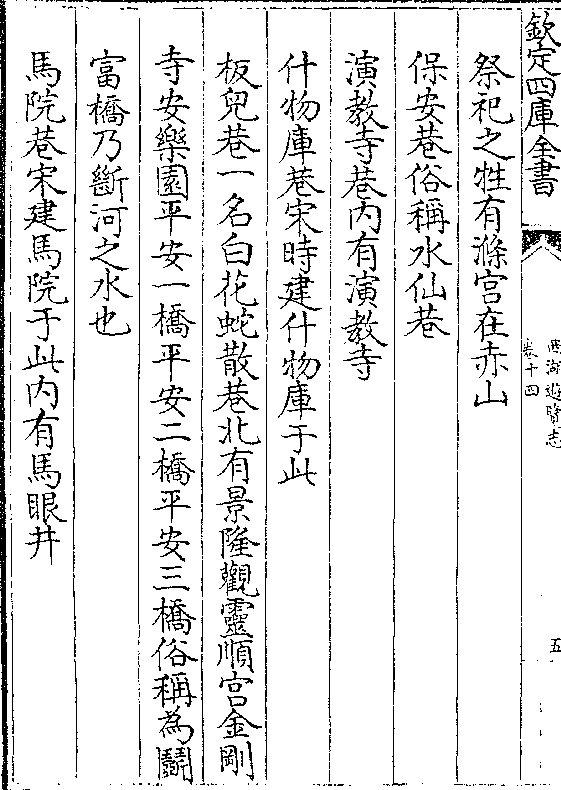 欽定四庫全書
西湖遊覽志
卷十四
五
祭祀之牲有滌宫在赤山
保安巷俗稱水仙巷
演教寺巷内有演教寺
什物庫巷宋時建什物庫于此
板兒巷一名白花蛇散巷北有景隆觀靈順宫金剛
寺安樂園平安一橋平安二橋平安三橋俗稱為鬬
富橋乃斷河之水也
馬院巷宋建馬院于此内有馬眼井